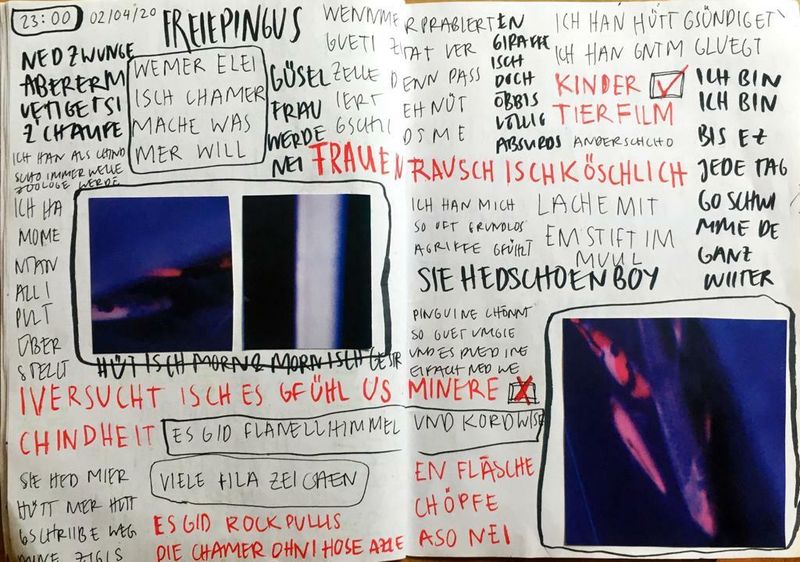 23:00
02/04/20
FREIEPINGUS
NED ZWUNGE
ABER ERM
Z'CHAUFE
WEMER ELEI
ISCH CHAMER
MACHE WAS
MER WILL
GÜSEL
FRAU
WERDE
NEI
ICH HAN ALS CHIND
SCHO IMMER WELLE
ZOOLOGE WERDE
ICH HA
MOME
NTAN
ALLI
PULT
ÜBER
STELLT
GIRAFFE
ISCH
DOCH
ÖBBIS
VÖLLIG
ABSURDS
ICH HAN HÜTT GSÜNDIGET
ICH HAN GNTM GLUEGT
KINDER
TIERFILM
ANDERSCHCHO
ICH BIN
ICH BIN
BIS EZ
JEDE TAG
GO SCHWI
MME DE
GANZ
WIITER
FRAUENRAUSCH ISCH KÖSCHLICH
ICH HAN MICH
SO OFT GRUNDLOS
AGRIFFE GFÜHLT
LACHE MIT
EM STIFT IM
MUUL
SIE HED SCHOEN BOY
PINGUINE CHÖNNT
SO GUET UMGIE
EIFACH NED WE
HÜT ISCH MORNZ MORN ISCH GESTR
IVERSUCHT ISCH ES GFÜHL US MINERE
CHINDHEIT
ES GID FLANELLHIMMEL UND KORDWISE
VIELE FILA ZEICHEN
SIE HED MIER
HÜTT MER HÜTT
GSCHRIIBE WEG
ES GID ROCKPULLIS
DIE CHAMER OHNI HOSE AZIE
EN FLÄSCHE
CHÖPFE
ASO NEI